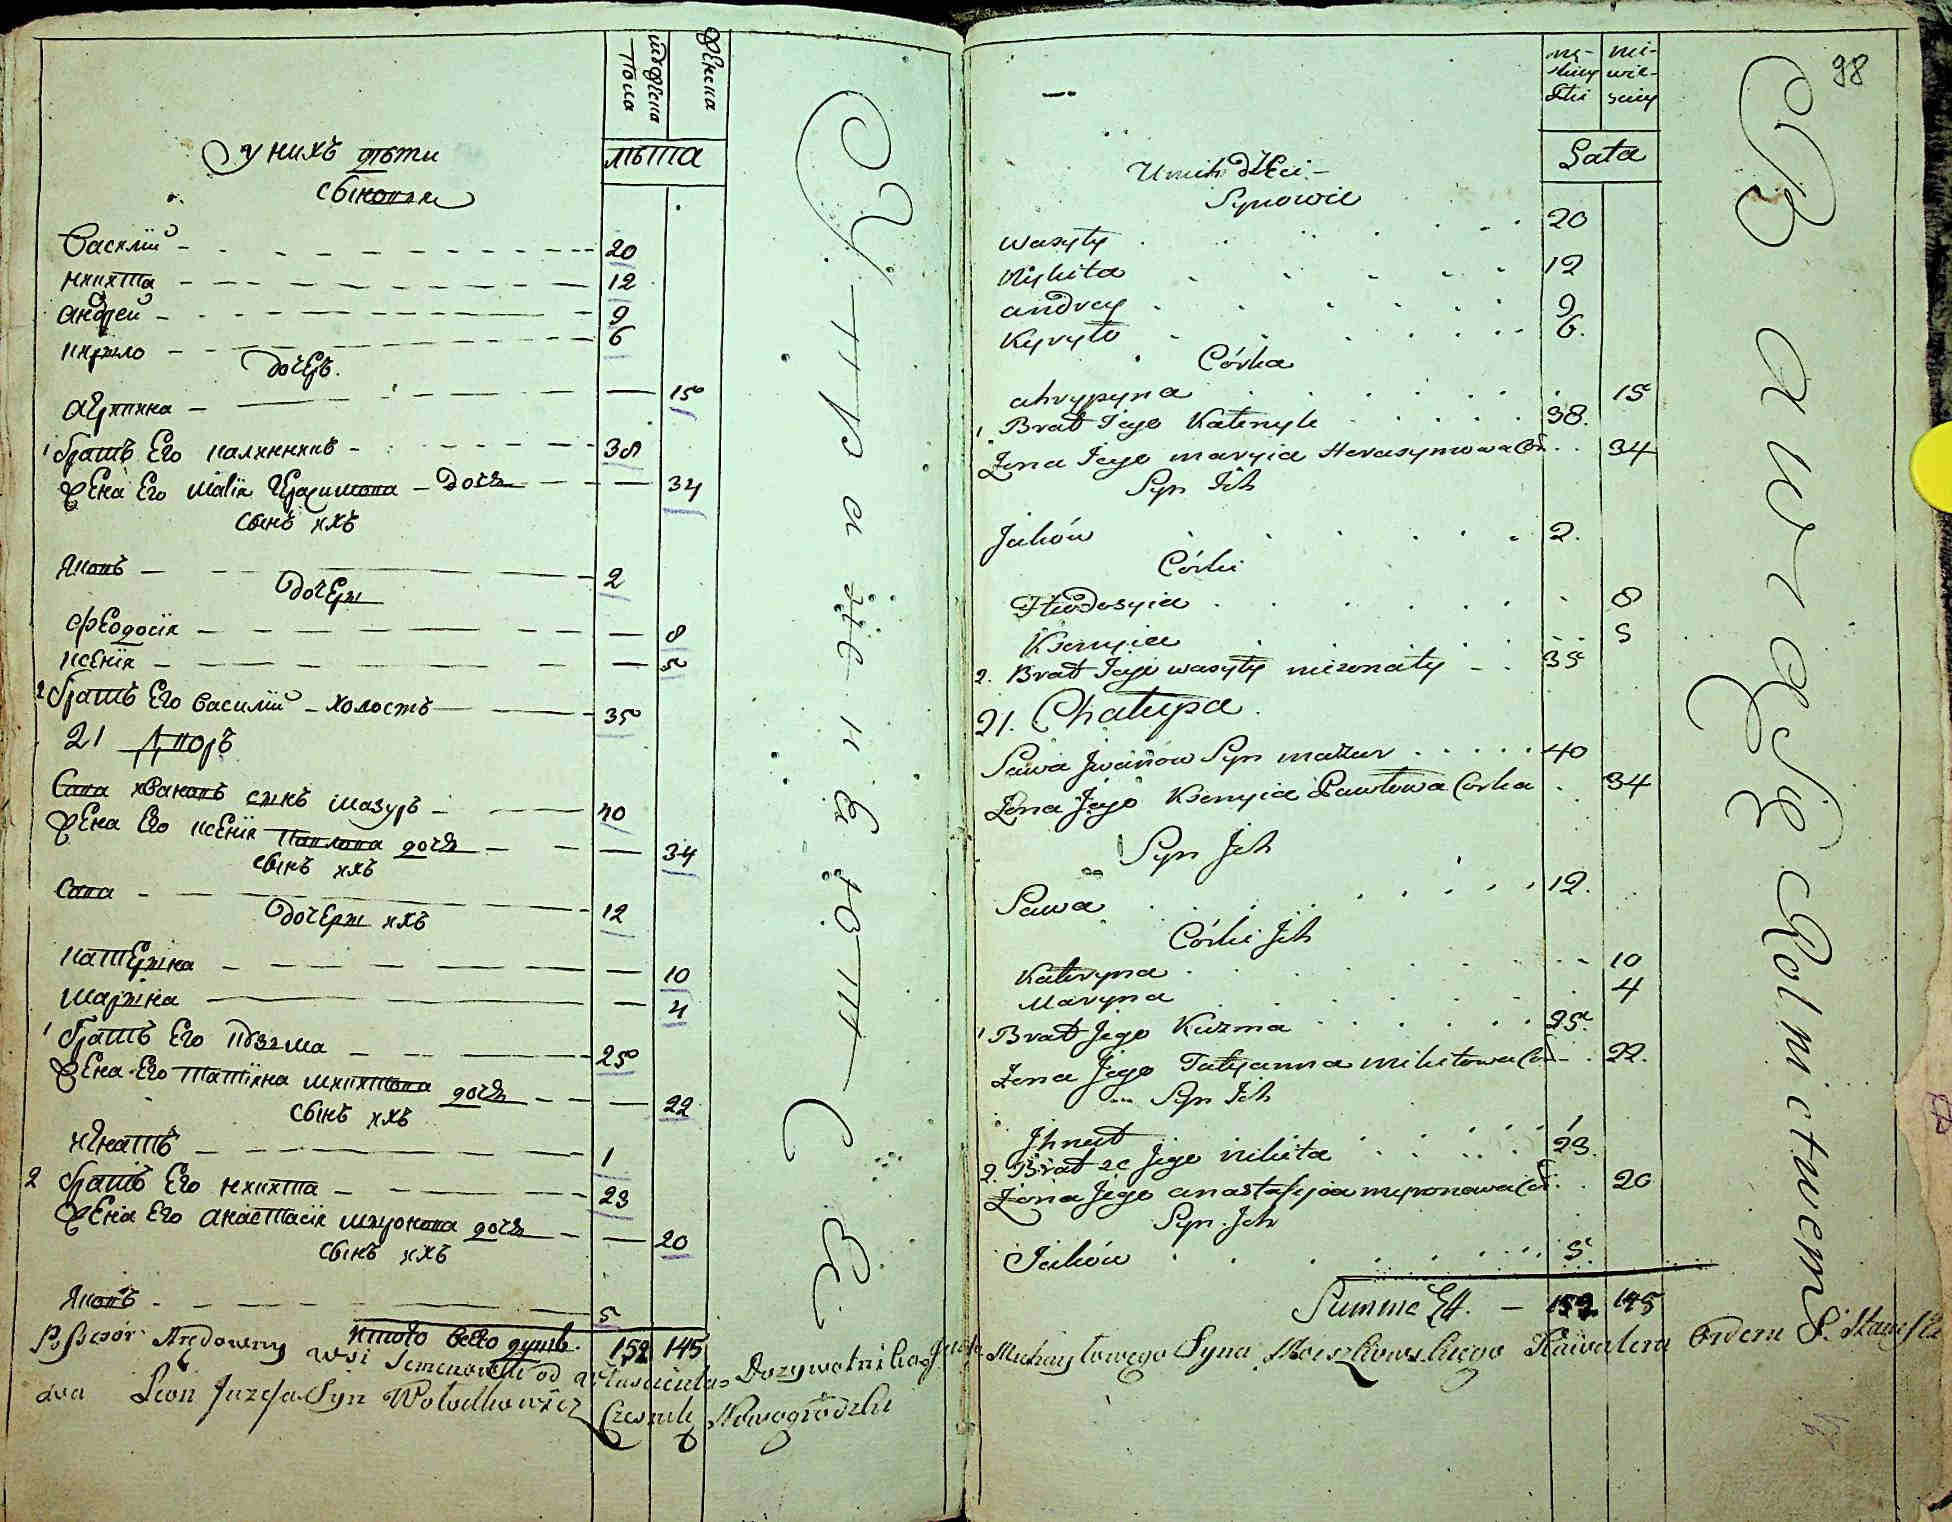 мужеска пола
женска
лѣта
У нихъ дѣти
сыновя
Василій 20
Никита 12
Андрей 9
Кирило 6
дочерь
Агрипина 15
1 братъ Его Калинникъ 38
жена Его Марія Герасимова дочь 34
сынъ ихъ
Яковъ 2
дочери
Феодосія 8
Ксенія 5
2 братъ Его Василій холостъ 35
21 дворъ
Сава Ивановъ синъ Мазуръ 40
жена Его Ксенія Павлова дочь 34
сынъ ихъ
Сава 12
дочери ихъ
Катерина 10
Марина 4
1 братъ Его Кузма 25
жена Его Татіяна Микитова дочь 22
сынъ ихъ
Игнатъ 1
2 братъ Его Никита 23
жена Его Анастасія Миронова дочь 20
сынъ ихъ
Яковъ 5
итого всего душъ 152 145
Упражнеются въ
98
męskiey płci
niewieściey
Lata
U nich dzieci
Synowie
Wasyly 20
Nykita 12
Andrey 9
Kyryło 6
Córka
Ahrypyna 15
1 Brat Jego Kalenyk 38
Żona Jego Maryia Herasymowa Cór 34
Syn Ich
Jaków 2
Córki
Fteodosyia 8
Ksenyia 5
2. Brat Jego Wasyly nieżonaty 35
21. Chałupa
Sawa Jwanow Syn Mazur 40
Żona Jego Ksenyia Pawłowa Corka 34
Syn Jch
Sawa 12
Córki Jch
Kateryna 10
Maryna 4
1 Brat Jego Kuzma 25
Żona Jego Tatyanna Mikitowa Cór 22
Syn Ich
Jhnat 1
2. Brat 2e Jego Nikita 23
Żona Jego Anastasyia Myronowa Cór 20
Syn Jch
Jaków 5
Summa 152 145
Bawią Się Rolnictwem
Possesór Aredowny wsi Semenowki od Własciciela Dożywotnika Michayłowego Syna Mószkowskiego Kawalera Orderu S. Stanisła
wa Leon Juzefa Syn Wołodkowicz Czesnik Nowogródzki